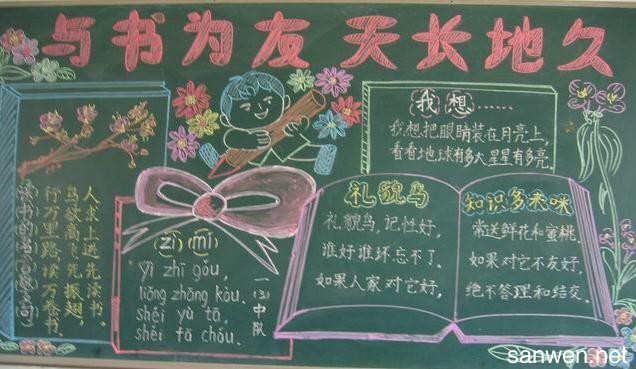 与书为友 天长地久
读书的名言名句
行万里路读万卷书。
鸟欲高飞先振翅，
人求上进先读书。
(zì) (mí)
yī zhī gǒu,
liǎng zhāng kǒu.
shéi yù tā,
shéi fā chóu.
一(3)中队
我想……
我想把眼睛装在月亮上,
看看地球有多大星星有多亮.
礼貌鸟
礼貌鸟,记性好,
谁好谁坏忘不了.
如果人家对它好,
知识多来咪
常送鲜花和蜜桃.
如果对它不友好,
绝不答理和结交.
sanwen.net